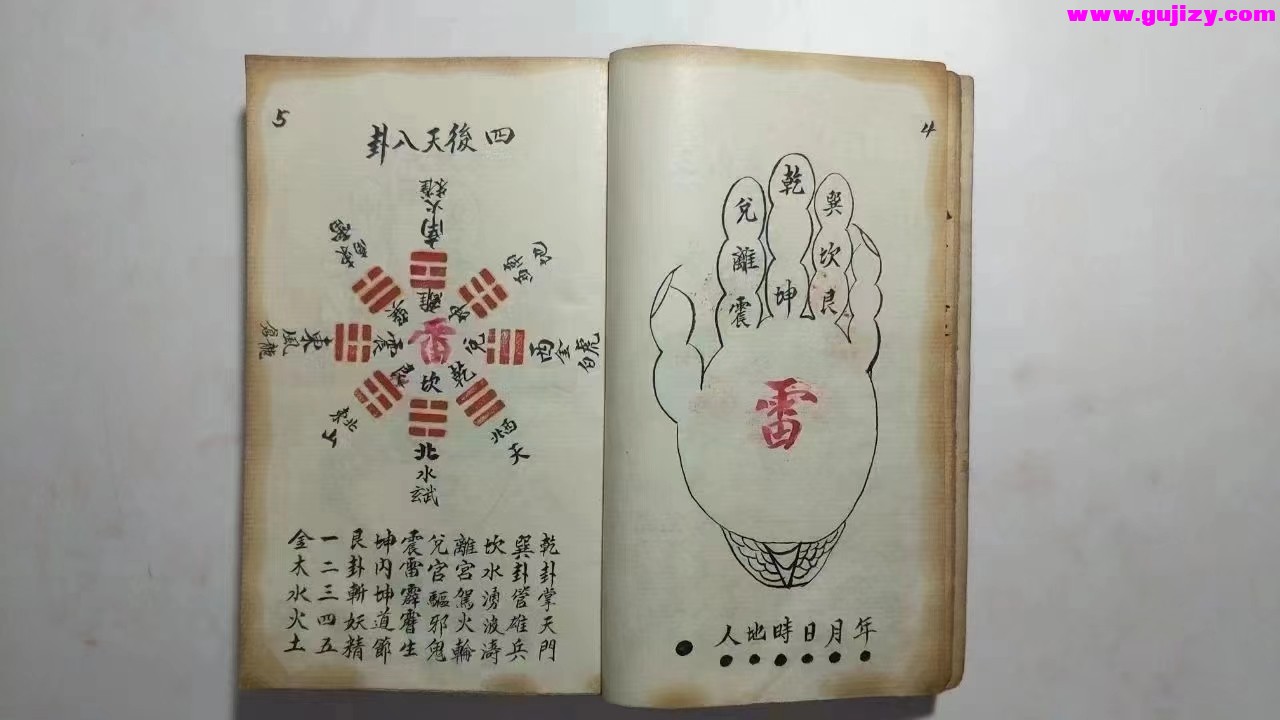 www.gujizy.com
4
乾
坤
巽
坎
艮
兌
離
震
雷
年月日時地人
5
四後天八卦
南火朱雀
離
坤
兌
西金白虎
乾
西北天
坎
北水玄武
艮
東北山
震
東風青龍
巽
雷
乾卦掌天門
巽卦管雄兵
坎水湧波濤
離宮駕火輪
兌宮驅邪鬼
震雷霹靂生
坤內坤道節
艮卦斬妖精
一二三四五
金木水火土